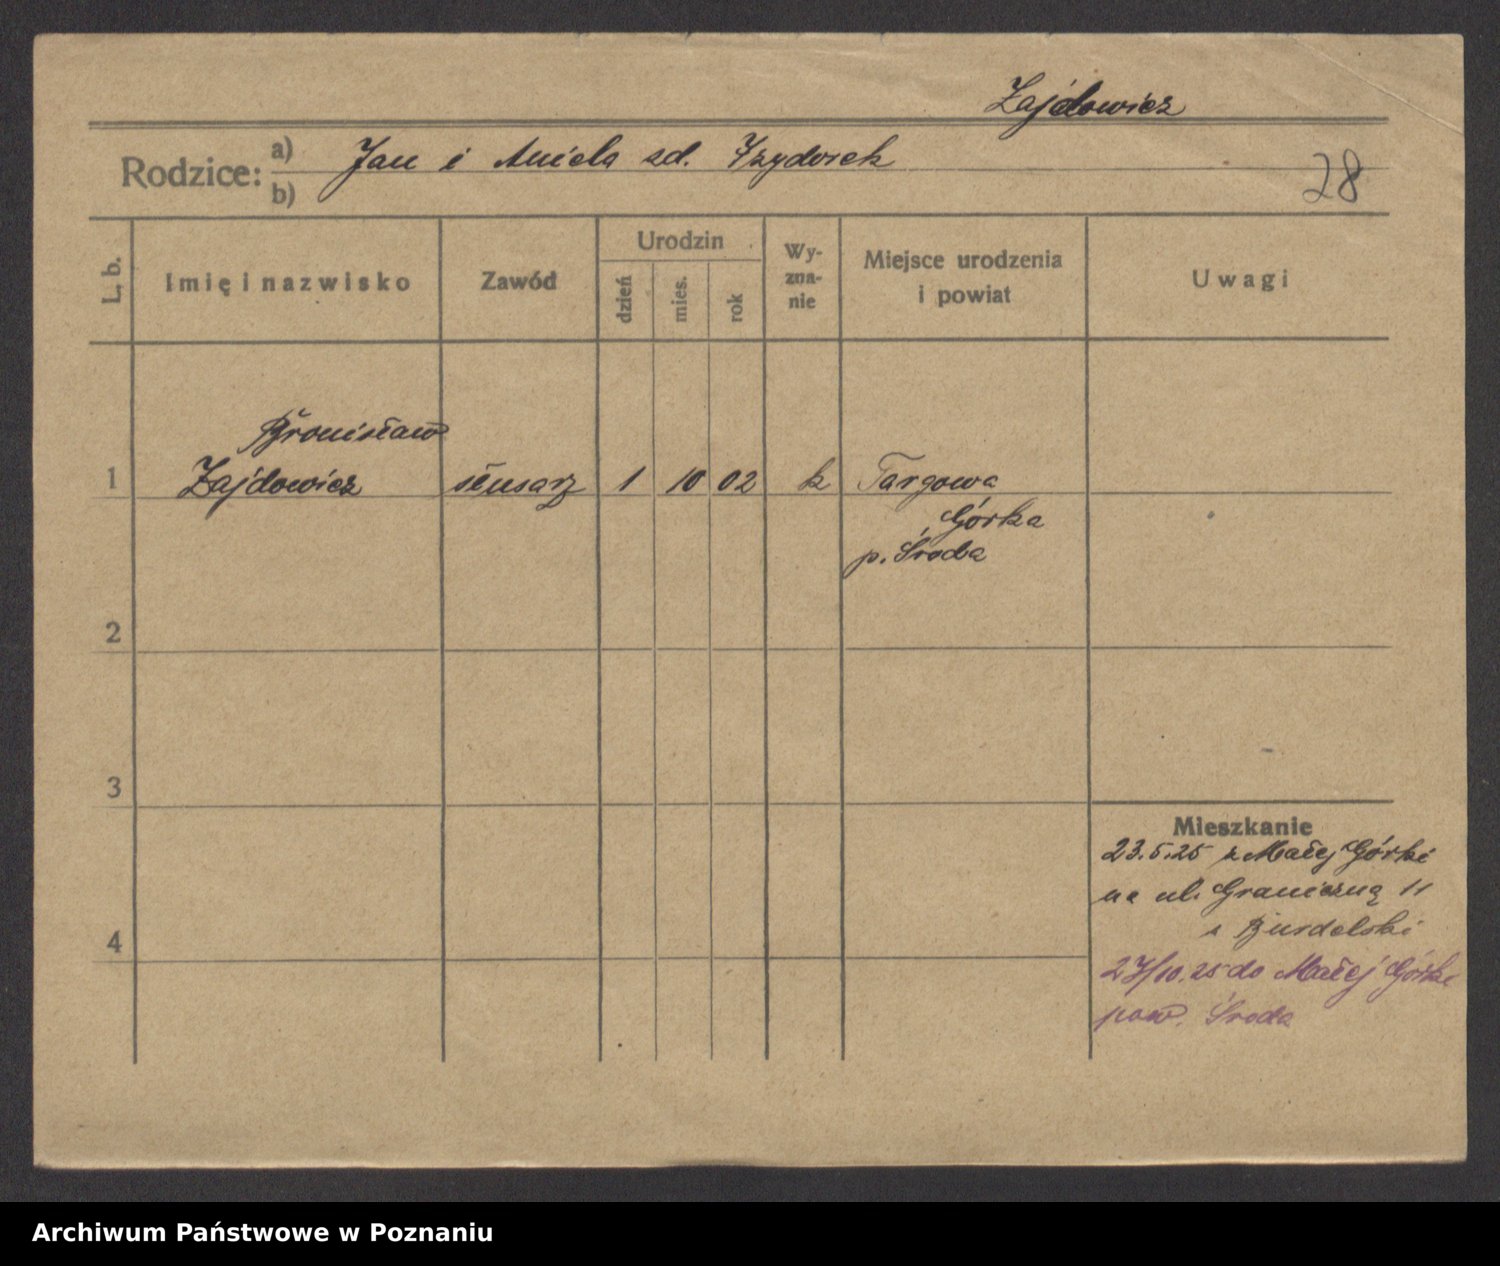 Zajdowicz
Rodzice: a) Jan i Aniela zd. Izydorek
b)
28
L. b.
Imię i nazwisko
Zawód
Urodzin
dzień
mies.
rok
Wy-
zna-
nie
Miejsce urodzenia
i powiat
Uwagi
Bronisław
1 Zajdowicz ślusarz 1 10 02 k Targowa
Górka
p. Środa
2
3
Mieszkanie
23.5.25 z Małej Górki
na ul. Graniczną 11
s Burdelski
4
27/10.25 do Małej Górki
pow. Środa
Archiwum Państwowe w Poznaniu